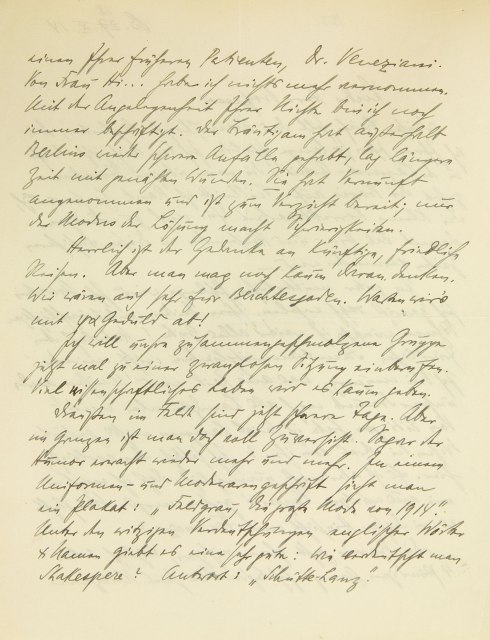 einen Ihrer früheren Patienten, Dr. Veneziani.
Von Frau Hi... habe ich nichts mehr vernommen.
Mit der Angelegenheit Ihrer Nichte bin ich noch
immer beschäftigt. Der Bräutigam hat außerhalb
Berlins viele schwere Anfälle gehabt, lag längere
Zeit mit genähten Wunden. Sie hat Vernunft
angenommen und ist zum Verzicht bereit; nur
der Modus der Lösung macht Schwierigkeiten.
Herrlich ist der Gedanke an künftige, friedlich
Reisen. Aber man mag noch kaum daran denken.
Wir wären auch sehr für Berchtesgaden. Warten wir's
mit Geduld ab!
Ich will unsre zusammengeschmolzene Gruppe
jetzt mal zu einer zwanglosen Sitzung einberufen.
Viel wissenschaftliches Leben wird es kaum geben.
Draußen im Felde sind jetzt schwere Tage. Aber
im Ganzen ist man doch voll Zuversicht. Sogar der
Humor erwacht wieder mehr und mehr. In einem
Uniformen- und Modewarengeschäft sieht man
ein Plakat: „Feldgrau, die große Mode von 1914".
Unter den witzigen Verdeutschungen englischer Wörter
& Namen giebt es eine sehr gute: Wie verdeutscht man
Shakespere? Antwort: „Schütte-Lanz".